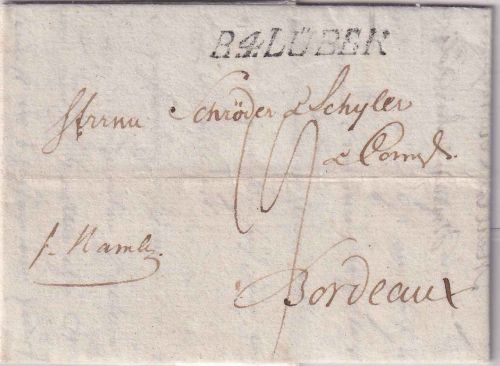 R.4.LÜBEK
Herrnn Schröder & Schÿler
& Comp.
p. Hambg.
Bordeaux